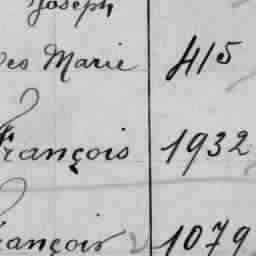 Joseph
des Marie 415
François 1932
François 1079